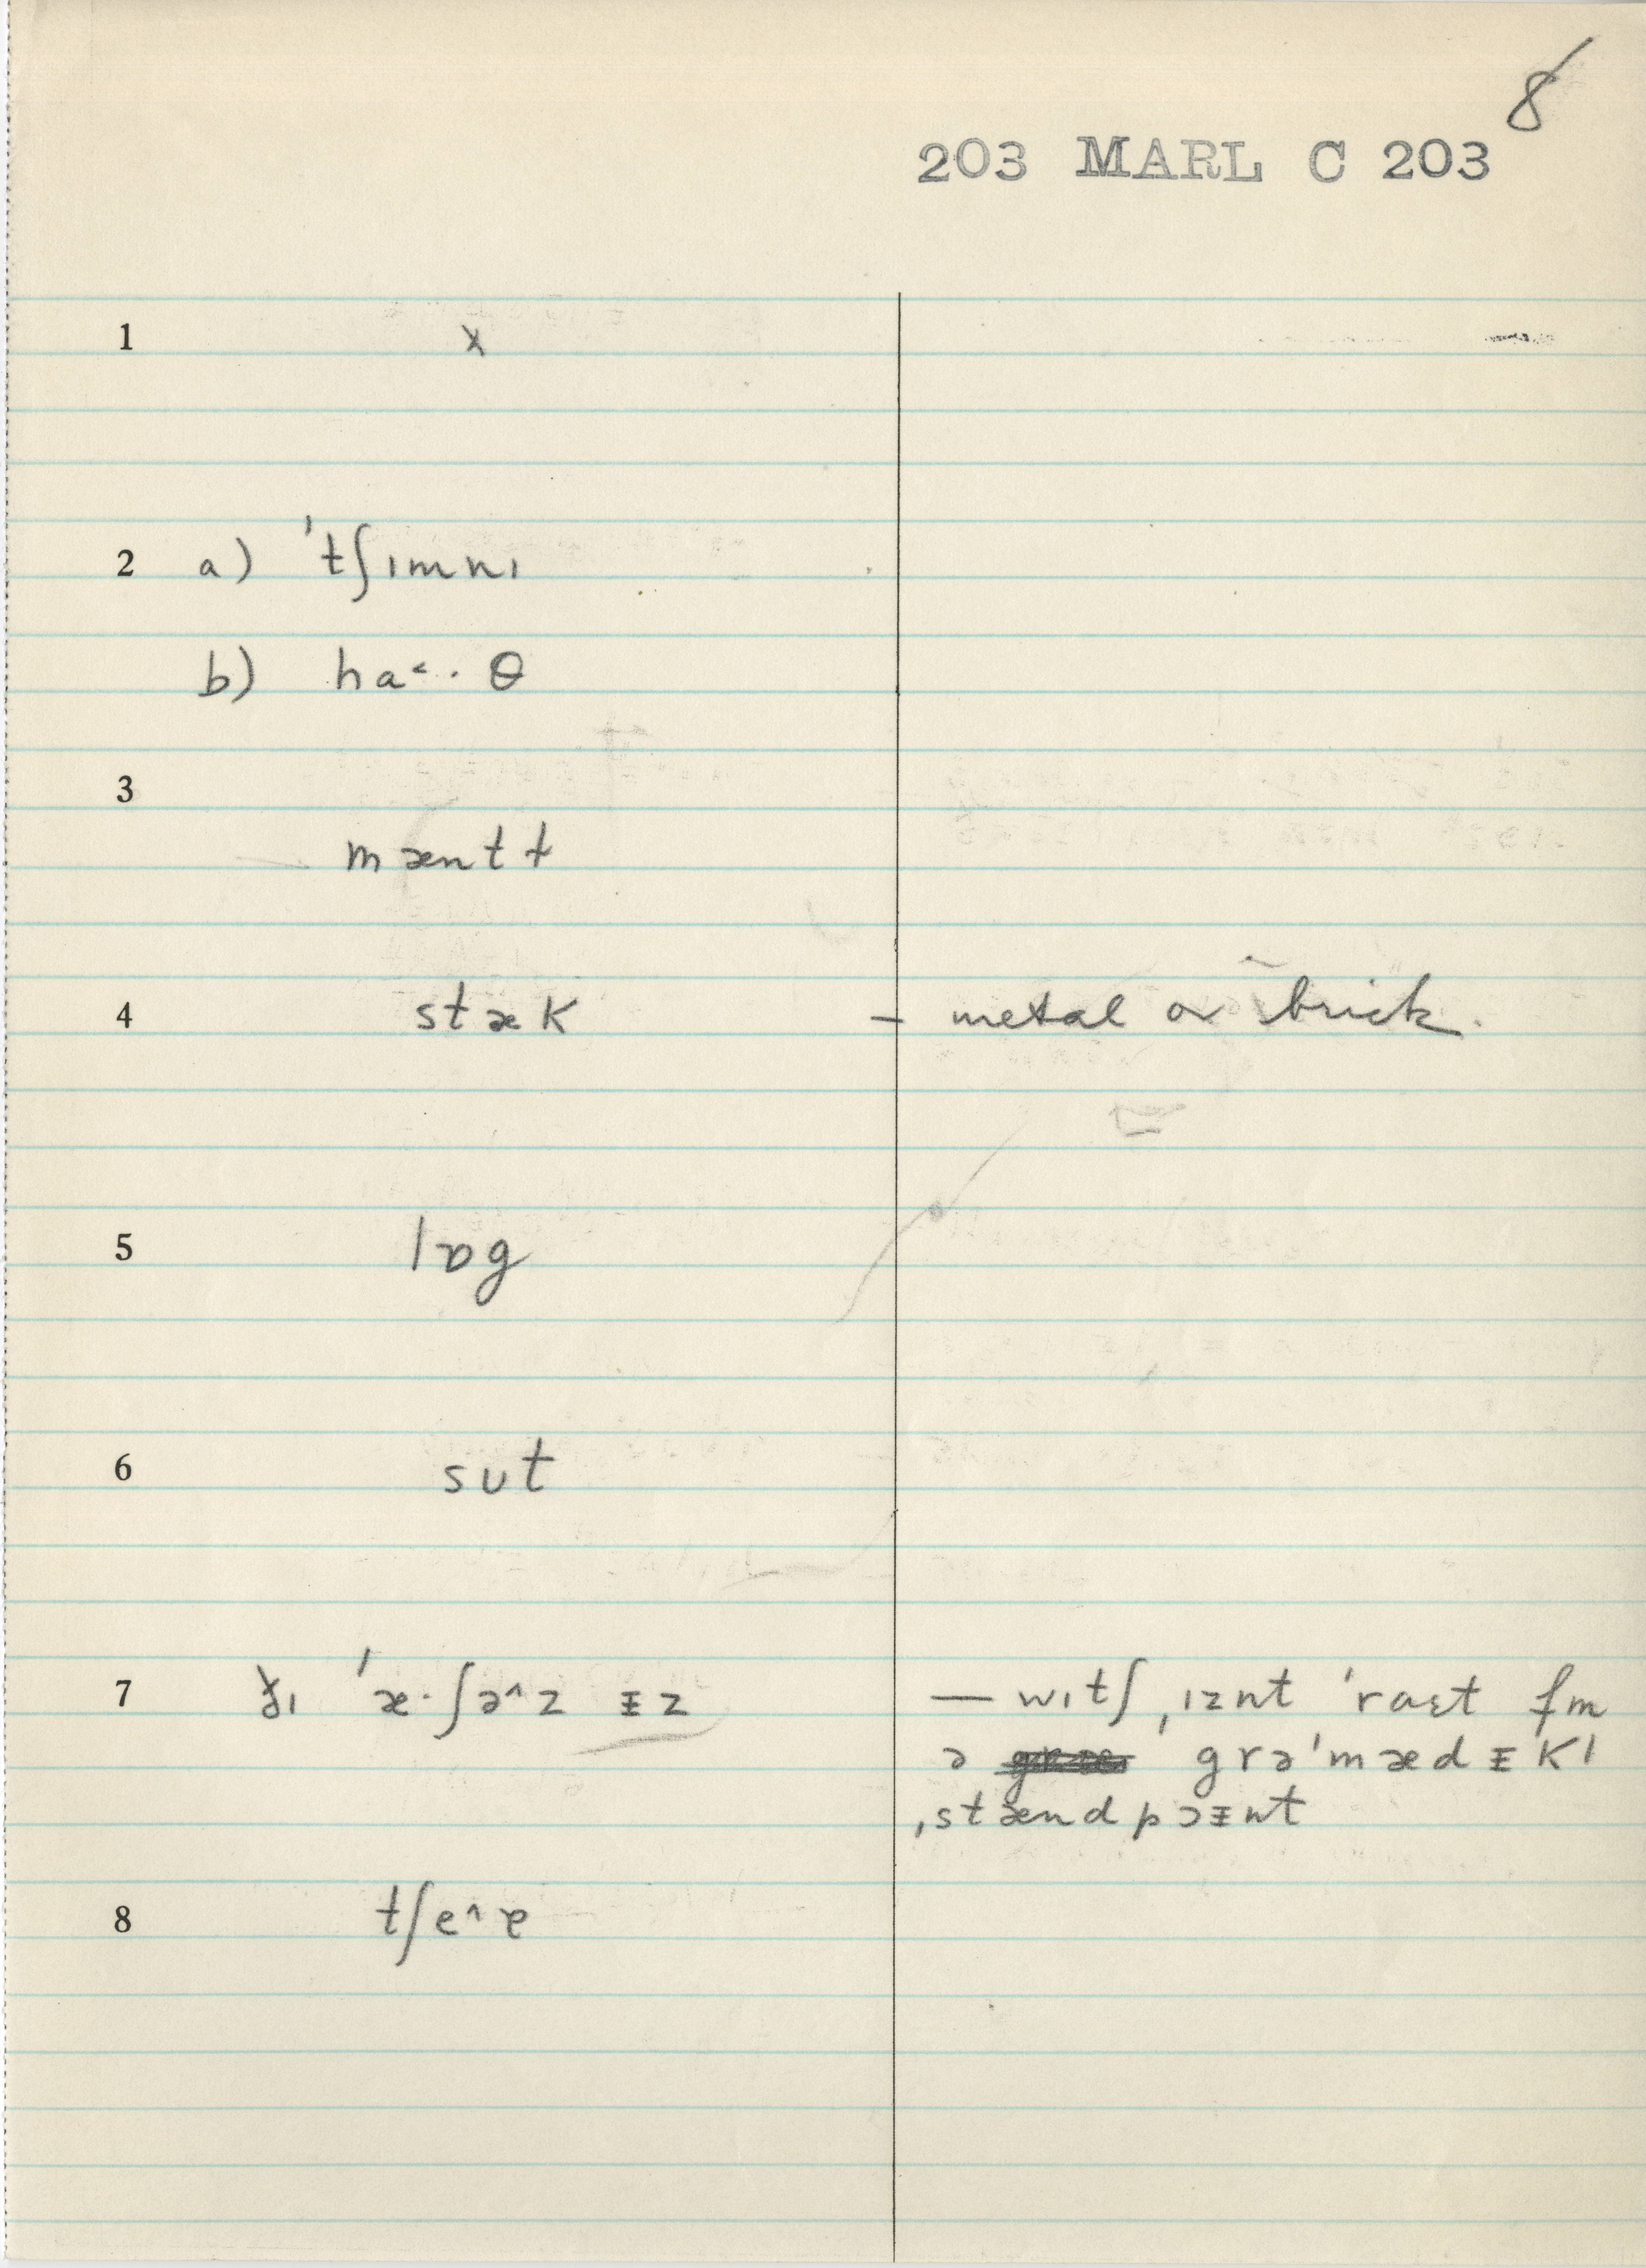 8
203 MARL C 203
1 x
2 a) ˈtʃımnı
b) ha˂· θ
3
mæntɫ
4 stæk – metal or brick.
5 lɒg
6 sut
7 ðı ˈæ·ʃə^z ᵻz — wıtʃ ˌıznt ˈraɛt fm
ə grəˈmædᵻkl
ˌstændpɔᵻnt
8 tʃe^ɚ